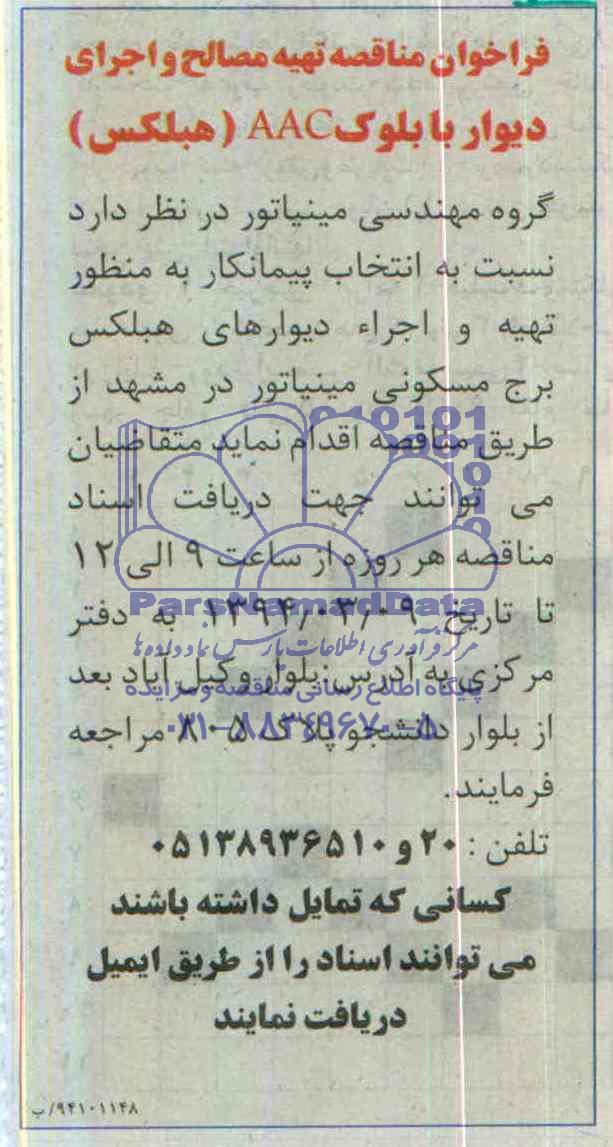 فراخوان مناقصه تهیه مصالح و اجرای
دیوار با بلوک AAC (هبلکس)
گروه مهندسی مینیاتور در نظر دارد
نسبت به انتخاب پیمانکار به منظور
تهیه و اجراء دیوارهای هبلکس
برج مسکونی مینیاتور در مشهد از
طریق مناقصه اقدام نماید متقاضیان
می توانند جهت دریافت اسناد
مناقصه هر روزه از ساعت ۹ الی ۱۲
تا تاریخ ۱۳۹۴/۰۳/۰۹ به دفتر
مرکزی به آدرس: بلوار وکیل آباد بعد
از بلوار دانشجو پلاک مراجعه
فرمایند.
تلفن : ۲۰ و ۰۵۱۳۸۹۳۶۵۱۰
کسانی که تمایل داشته باشند
می توانند اسناد را از طریق ایمیل
دریافت نمایند
۹۴۱۰۱۱۴۸/ب
ParsNamadData
مرکز فرآوری اطلاعات پارس نماد داده ها
پایگاه اطلاع رسانی مناقصه و مزایده
۰۲۱-۸۸۳۴۹۶۷۰-۵